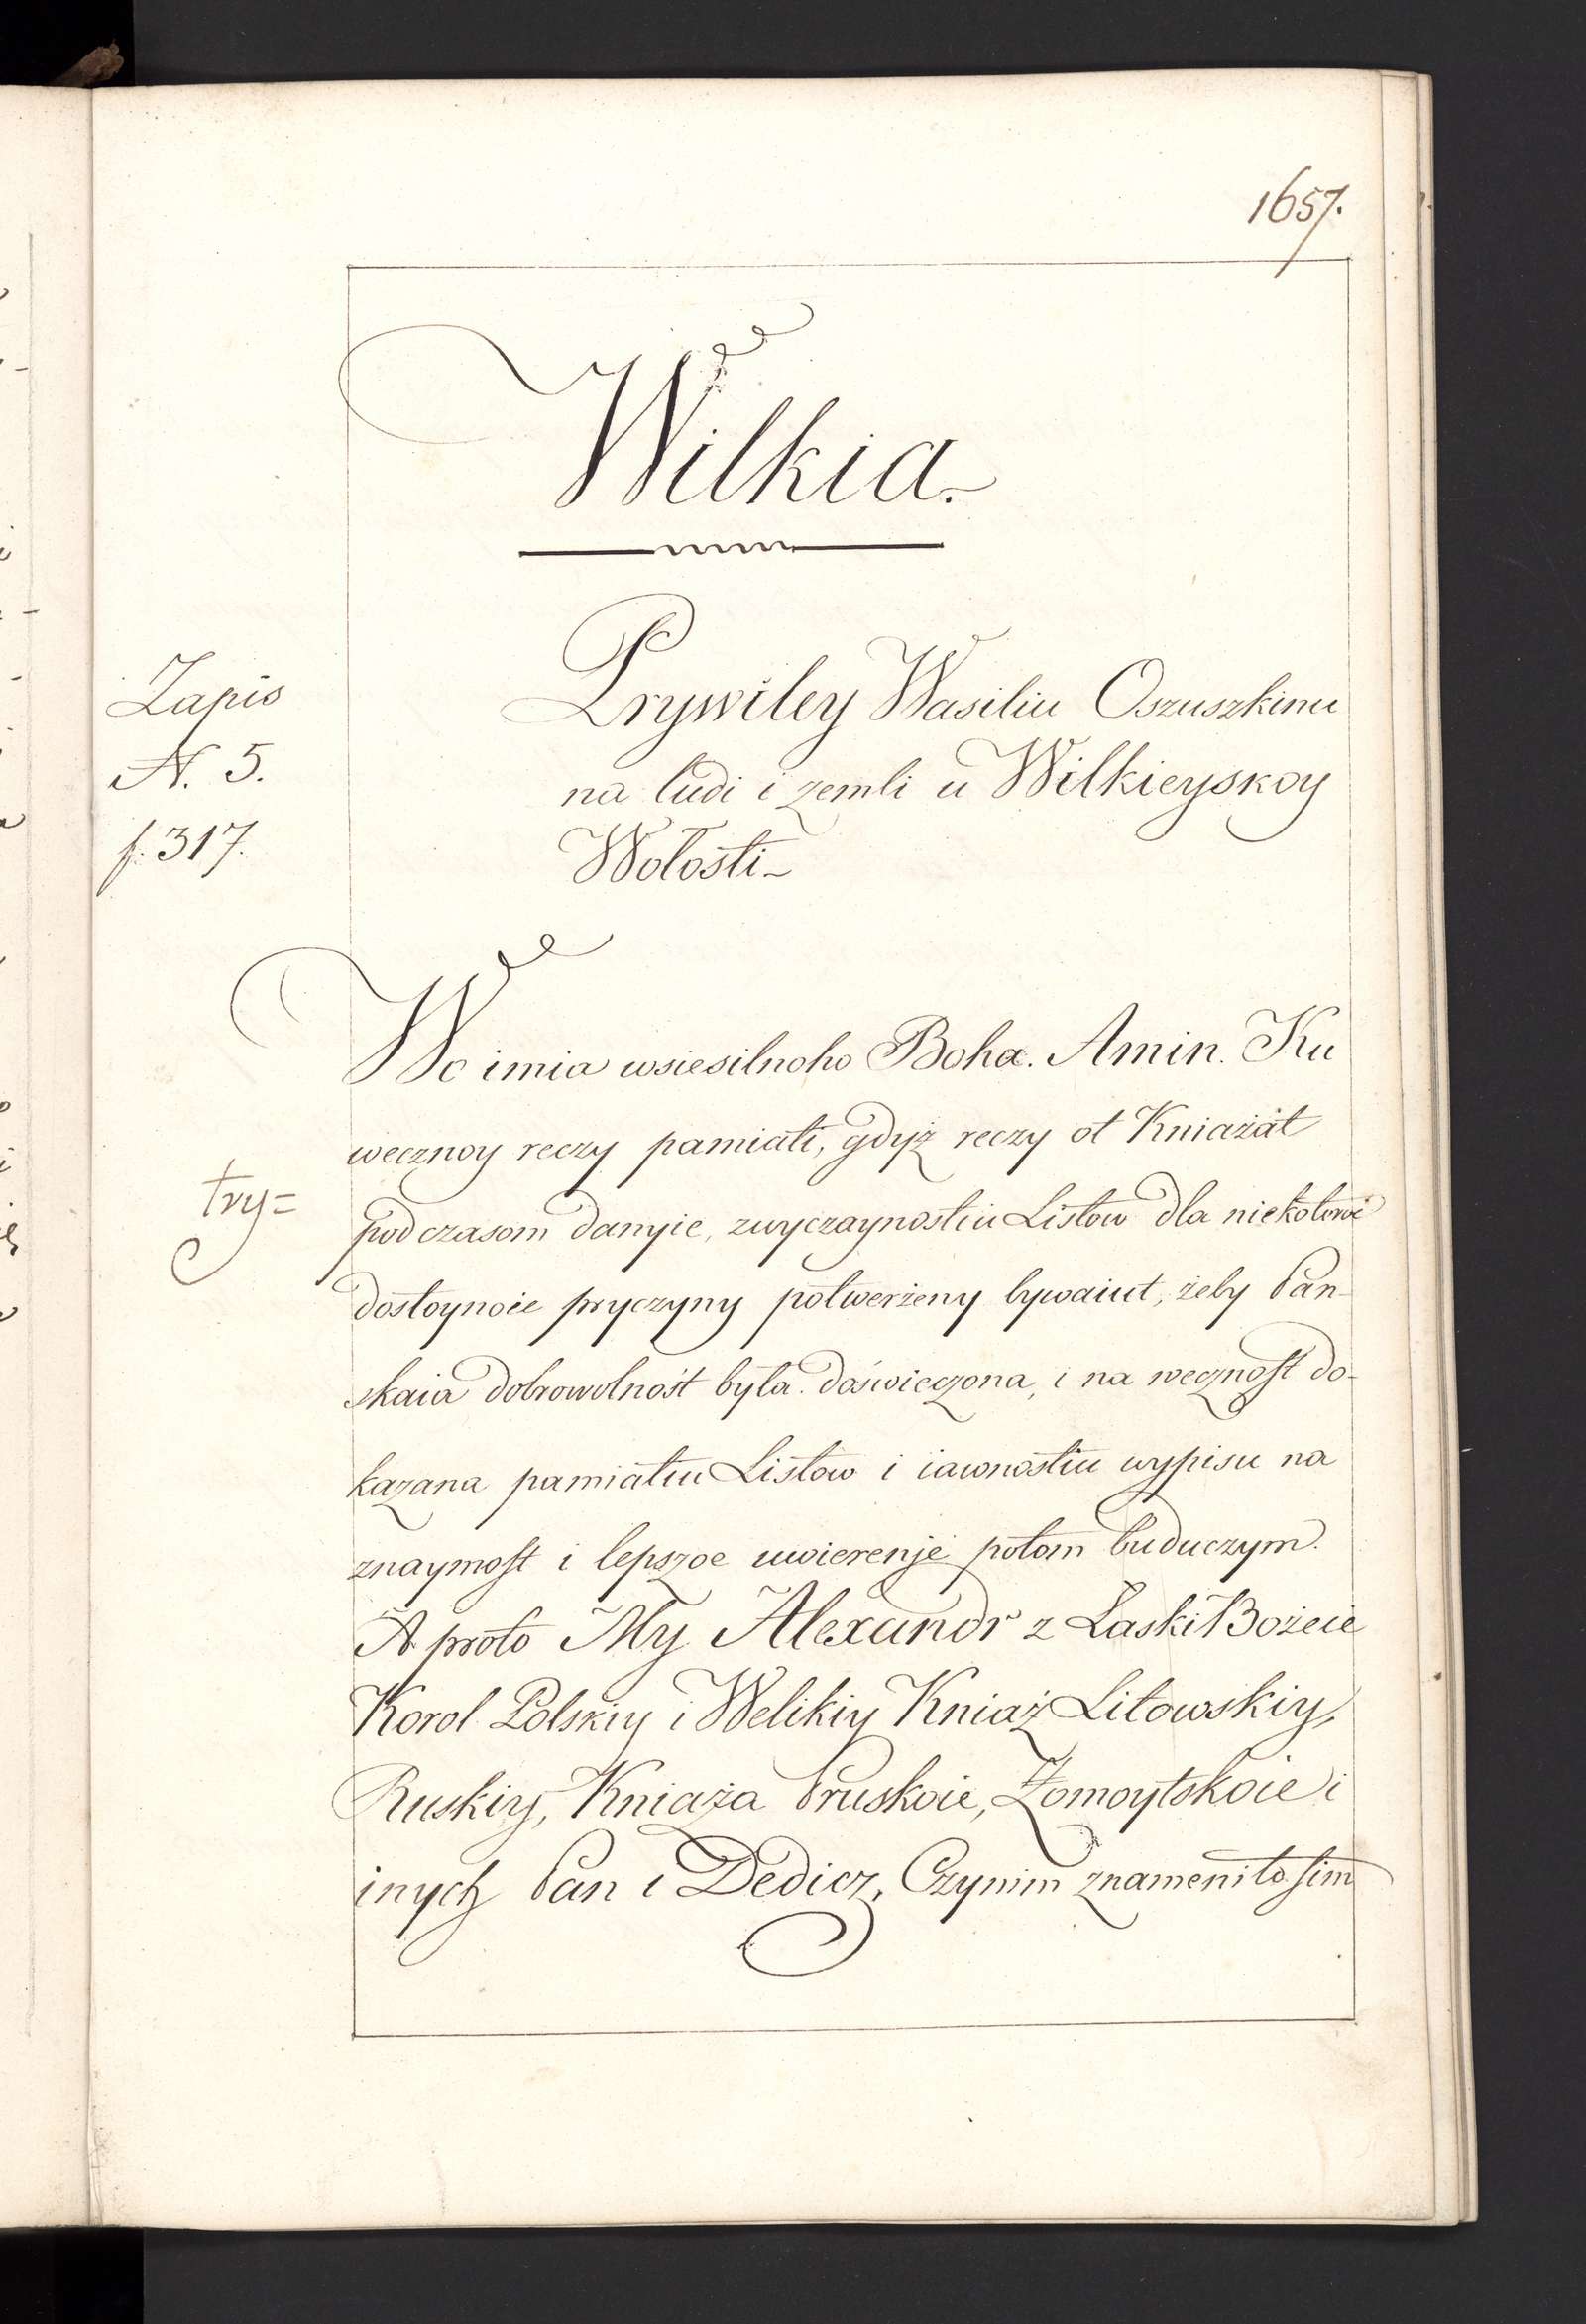 1657.
Wilkia.
Prywiley Wasiliu Oszuszkinu
na ludi i zemli u Wilkieyskoy
Wołosti
Zapis
N. 5.
f. 317.
Wo imia wsiesilnoho Boha. Amin. Ku
wecznoy reczy pamiati, gdyż reczy ot Kniażat
try=
pod czasom danyie, zwyczaynostiu Listow dla niekotoroi
dostoynoie pryczyny potwerżeny bywaiut, żeby Pan-
skaia dobrowolnośt była doświeczona, i na wecznost do-
kazana pamiatiu Listow i iawnostiu wypisu na
znaymost i lepszoe uwierenje potom buduczym.
A proto My Alexandr z Łaski Bożeie
Korol Polskiy i Welikiy Kniaż Litowskiy,
Ruskiy, Kniaża Pruskoie, Żomoytskoie i
inych Pan i Dedicz, Czynim znamenito sim